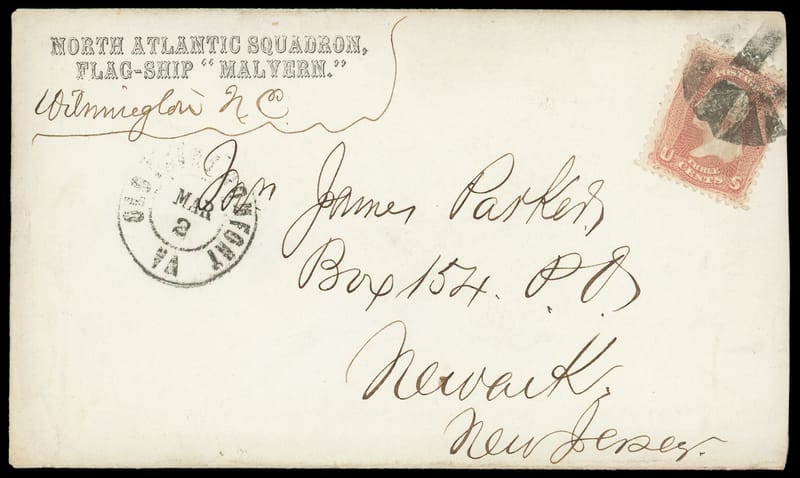 NORTH ATLANTIC SQUADRON,
FLAG-SHIP "MALVERN."
Wilmington N C
OLD POINT COMFORT
MAR
2
VA
James Parker,
Box 154. P.O.
Newark.
New Jersey.
U THREE S
CENTS